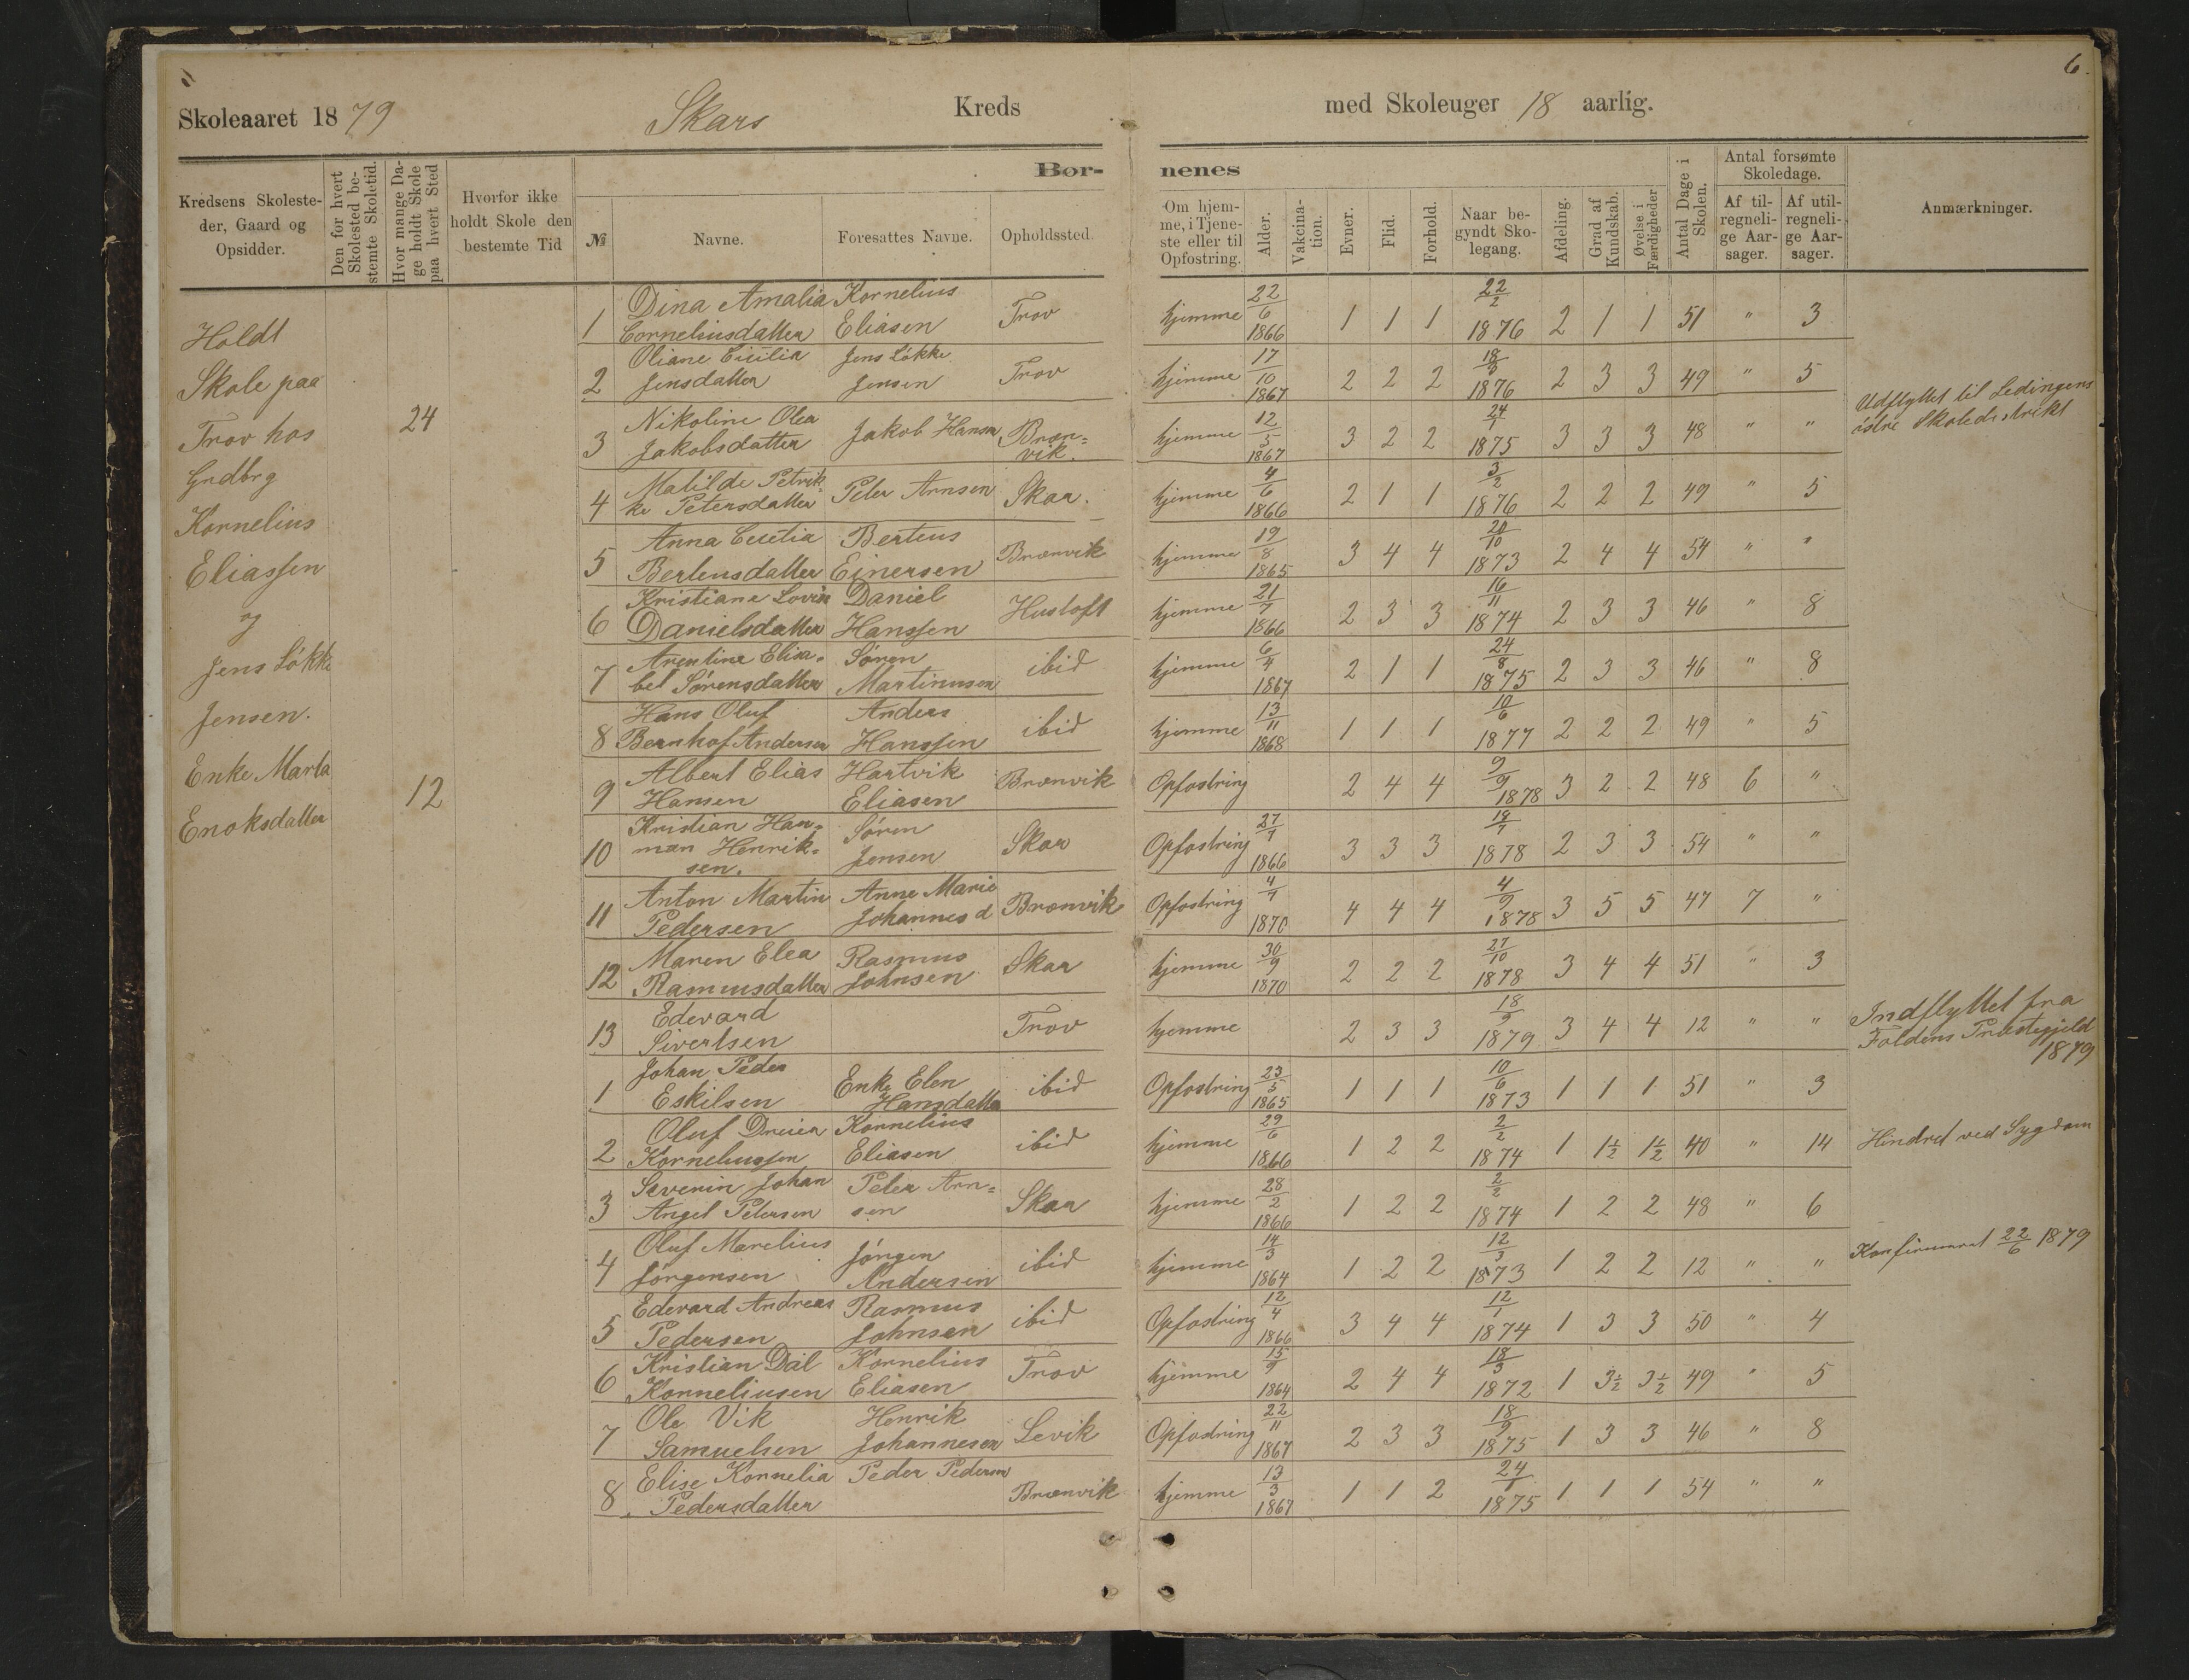 6.
Skoleaaret 1879 Skars Kreds med Skoleuger 18 aarlig.
Kredsens Skolesteder, Gaard og Opsidder.
Den for hvert Skolested bestemte Skoletid.
Hvor mange Dage holdt Skole paa hvert Sted
Hvorfor ikke holdt Skole den bestemte Tid
Børnenes
№ Navne. Foresattes Navne. Opholdssted. Om hjemme, i Tjeneste eller til Opfostring. Alder. Vakcination. Evner. Flid. Forhold. Naar begyndt Skolegang. Afdeling. Grad af Kundskab. Øvelse i Færdigheder Antal Dage i Skolen.
Antal forsømte Skoledage.
Af tilregnelige Aarsager. Af utilregnelige Aarsager.
Anmærkninger.
Holdt
Skole paa
Trov hos
24
Grdbrg
Kornelius
Eliassen
og
Jens Løkke
Jensen.
Enke Marta
12
Enoksdatter
1 Dina Amalia Corneliusdatter Kornelius Eliasen Trov hjemme 22/6 1866 1 1 1 22/2 1876 2 1 1 51 " 3
2 Oliane Cicilia Jensdatter Jens Løkke Jensen Trov hjemme 17/10 1867 2 2 2 1876 2 3 3 49 " 5
3 Nikoline Olea Jakobsdatter Jakob Hansen Brænvik. hjemme 12/5 1867 3 2 2 24/1 1875 3 3 3 48 " " Udflyttet til Lødingens østre Skoledistrikt
4 Matilde Petrikke Petersdatter Peter Arnsen Skar. hjemme 4/6 1866 2 1 1 3/2 1876 2 2 2 49 " 5
5 Anna Cecilia Bertensdatter Berteus Einersen Brænvik hjemme 19/8 1865 3 4 4 20/10 1873 2 4 4 54 " "
6 Kristiane Lovise Danielsdatter Daniel Hanssen Hustoft hjemme 21/7 1866 2 3 3 16/11 1874 2 3 3 46 " 8
7 Arentine Elisabet Sørensdatter Søren Martinusen ibid hjemme 6/4 1867 2 1 1 24/8 1875 2 3 3 46 " 8
8 Hans Oluf Bernhof Andersen Anders Hanssen ibid hjemme 13/11 1868 1 1 1 10/6 1877 2 2 2 49 " 5
9 Albert Elias Hansen Hartvik Eliasen Brænvik Opfostring 2 4 4 9/9 1878 3 2 2 48 6 "
10 Kristian Hanman Henriksen. Søren Jensen Skar Opfostring 27/7 1866 3 3 3 18/7 1878 2 3 3 54 " "
11 Anton Martin Pedersen Anne Marie Johannesd Brænvik Opfostring 4/7 1870 4 4 4 4/9 1878 3 5 5 47 7 "
12 Maren Elea Rasmusdatter Rasmus Johnsen Skar hjemme 30/9 1870 2 2 2 27/10 1878 3 4 4 51 " 3
13 Edevard Sivertsen Trov hjemme 2 3 3 18/9 1879 3 4 4 12 " " Indflyttet fra Foldens Præstegjeld 1879
1 Johan Peder Eskilsen Enke Elen Hansdatter ibid Opfostring 23/5 1865 1 1 1 10/6 1873 1 1 1 51 " 3
2 Oluf Dreier Korneliussen Kornelius Eliasen ibid hjemme 29/6 1866 1 2 2 2/2 1874 1 1½ 1½ 40 " 14 Hindret ved Sygdom
3 Severin Johan Angel Petersen Peter Arnsen Skar hjemme 28/2 1866 1 2 2 2/2 1874 1 2 2 48 " 6
4 Oluf Marelius Jørgensen Jørgen Andersen ibid hjemme 14/3 1864 1 2 2 12/3 1873 1 2 2 12 " " Konfirmeret 22/6 1879
5 Edevard Andreas Pedersen Rasmus Johnsen ibid Opfostring 12/4 1866 3 4 4 12/1 1874 1 3 3 50 " 4
6 Kristian Dal Korneliusen Kornelius Eliasen Trov hjemme 15/9 1864 2 4 4 18/3 1872 1 3½ 3½ 49 " 5
7 Ole Vik Samuelsen Henrik Johannesen Levik Opfostring 22/11 1867 2 3 3 18/9 1875 1 3 3 46 " 8
8 Elise Kornelia Pedersdatter Peder Pedersen Brænvik hjemme 13/3 1867 1 1 2 24/1 1875 1 1 1 54 " "